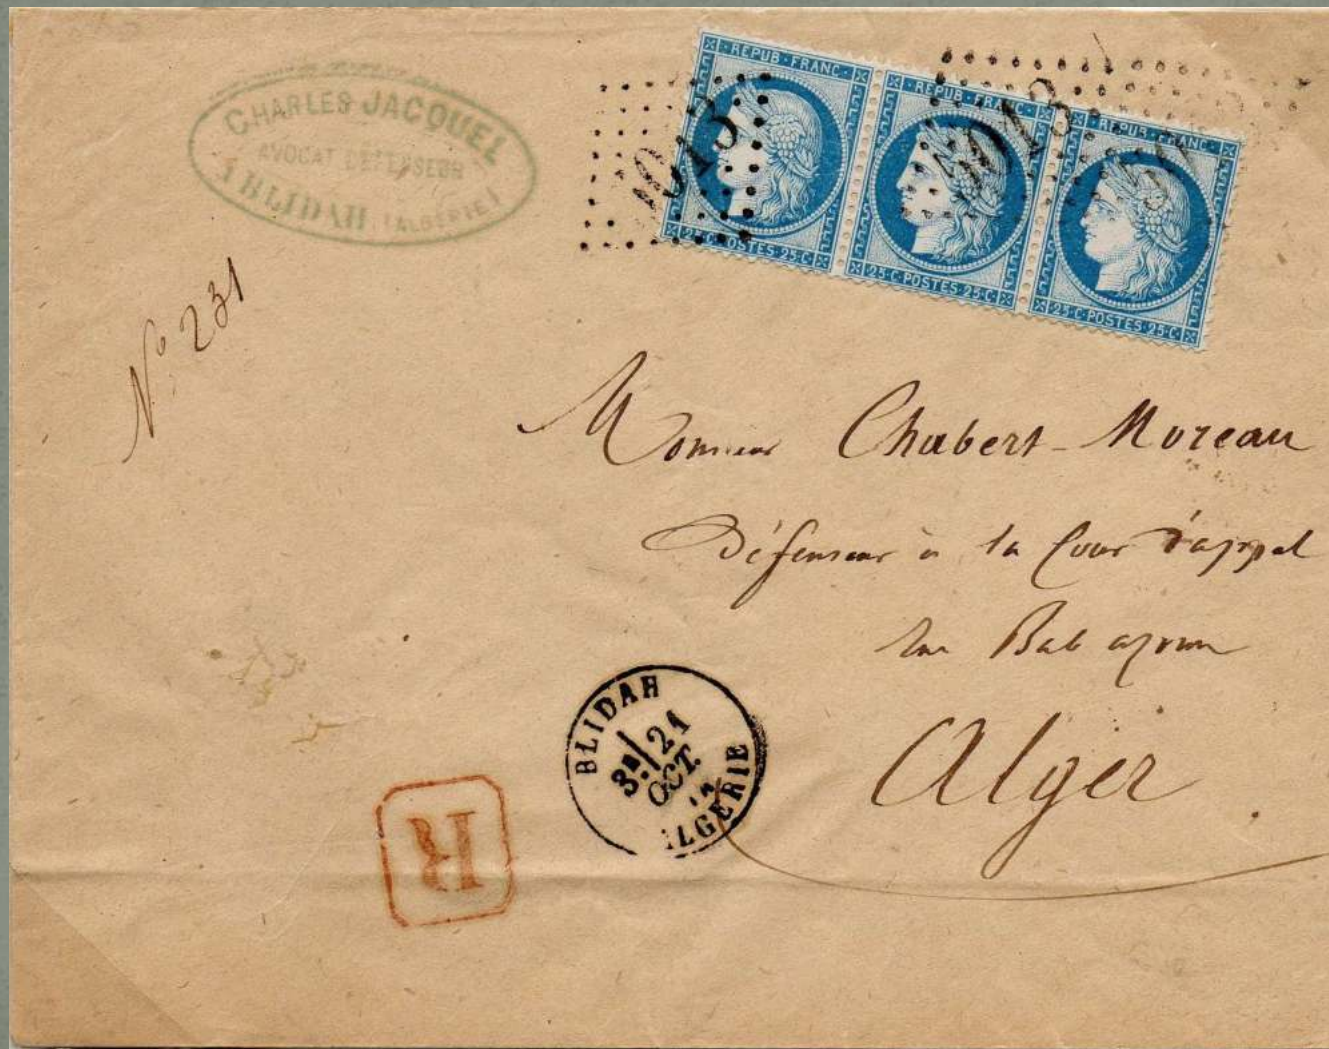 CHARLES JACQUEL
AVOCAT DÉFENSEUR
A BLIDAH (ALGÉRIE)
REPUB·FRANC·
25·C·POSTES·25·C·
REPUB·FRANC·
25·C·POSTES·25·C·
REPUB·FRANC·
25·C·POSTES·25·C·
5013
N° 231
Monsieur Chabert-Moreau
Défenseur à la Cour d'appel
rue Bab azoun
Alger
BLIDAH
3E 21
OCT.
ALGERIE
R